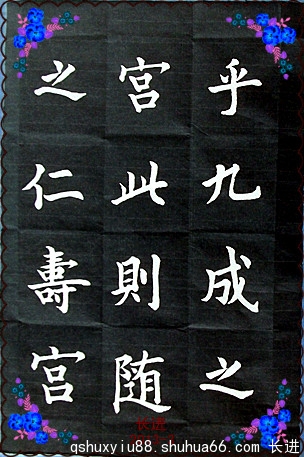 乎九成之
宫此則随
之仁壽宫
长进
qshuxyiu88.shuhua66.com 长进